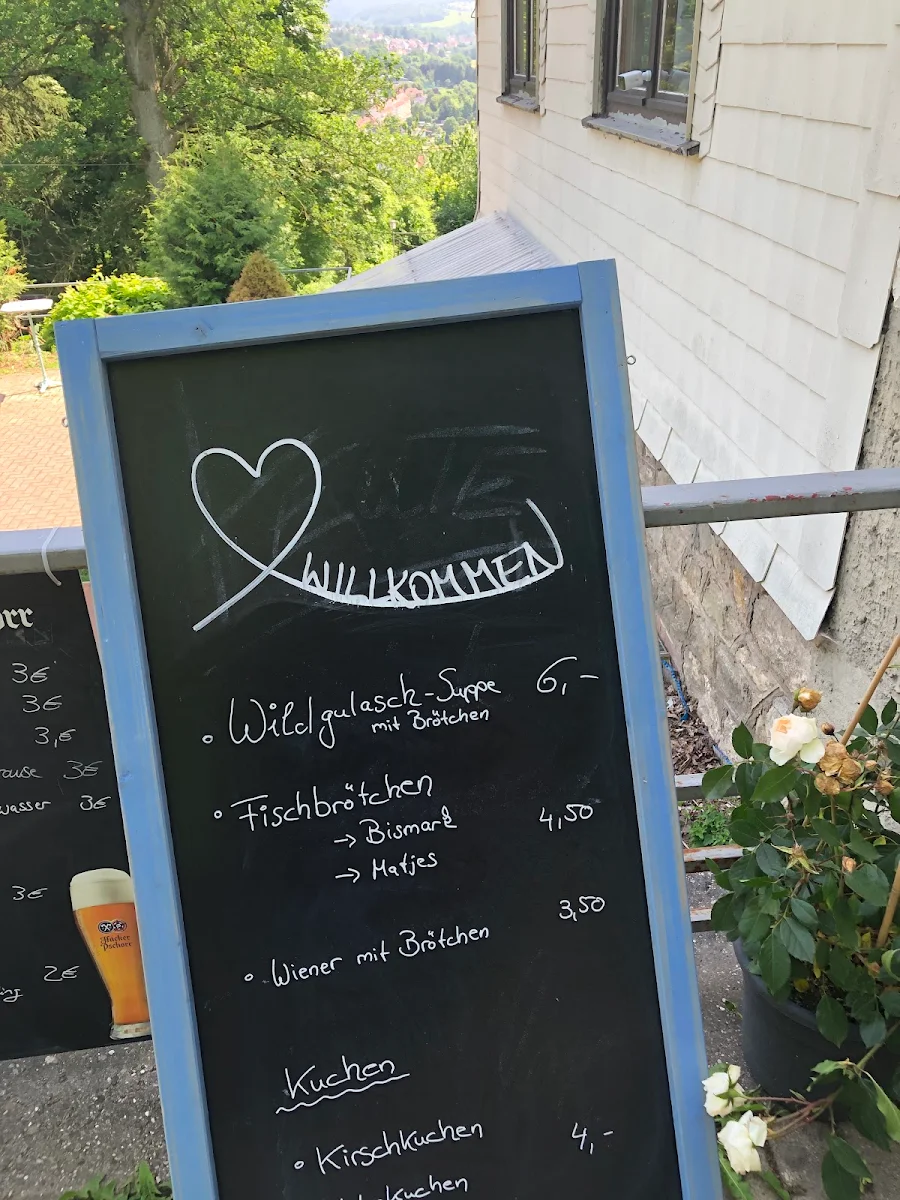 WILLKOMMEN
• Wildgulasch-Suppe 6,-
mit Brötchen
• Fischbrötchen
→ Bismark 4,50
→ Matjes
3,50
• Wiener mit Brötchen
Kuchen
• Kirschkuchen 4,-
kuchen
3€
3€
3,€
3€
wasser 3€
3€
2€
Hacker
Pschorr